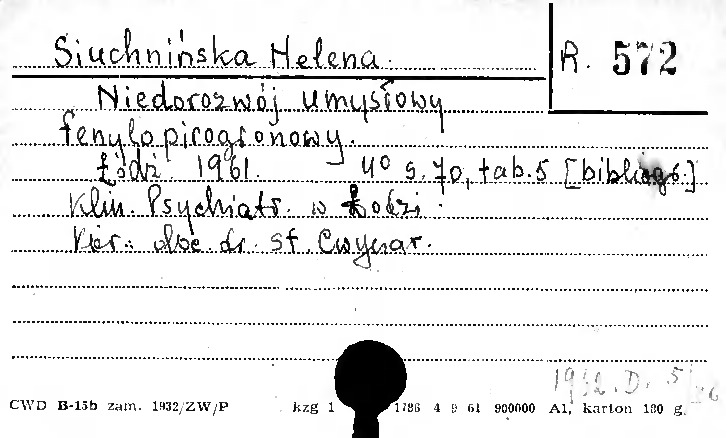 Siuchnińska Helena
R. 572
Niedorozwój umysłowy
fenylopirogronowy.
Łódź 1961. 4° s. 70, tab. 5 [bibliogr.]
Klin. Psychiatr. w Łodzi.
Kier.: doc. dr. St. Cwynar.
1962. D. 5/26
CWD B-15b zam. 1932/ZW/P kzg 1 1786 4 9 61 900000 A1, karton 180 g.